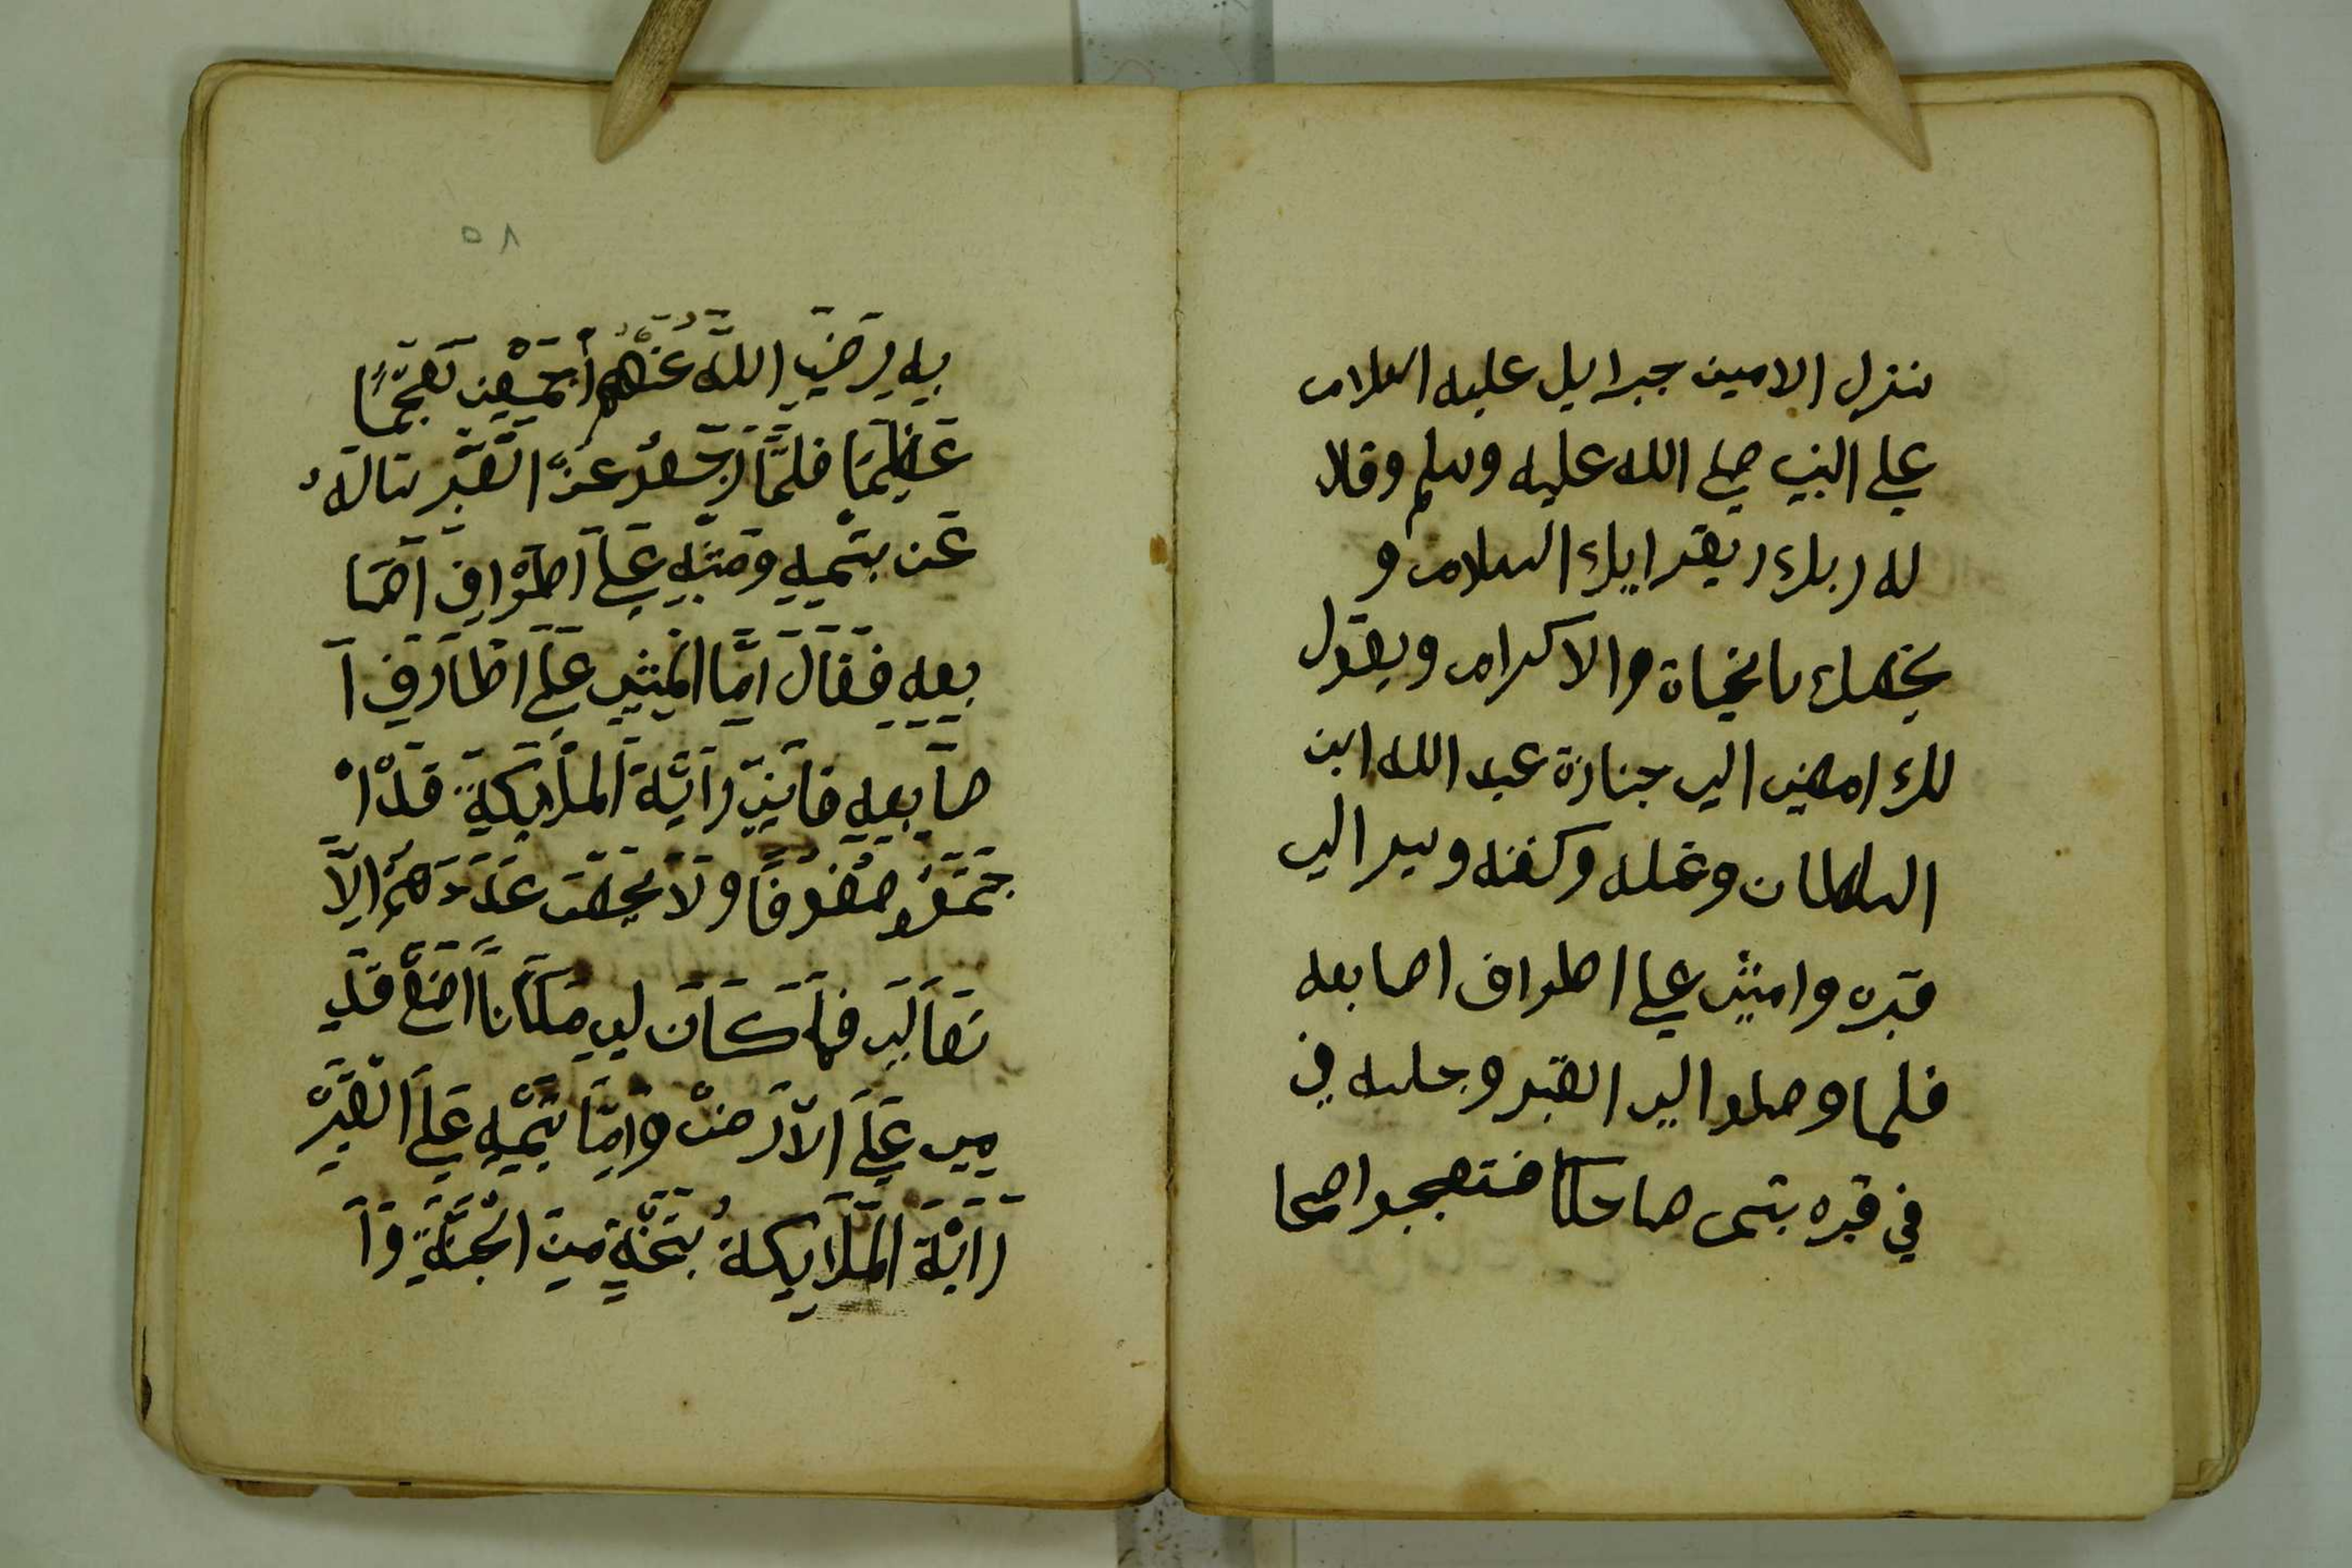 فنزل الامين جبرايل عليه السلام
علي النبي صلي الله عليه وسلم وقلا
له ربك يقرايك السلام و
يخصك بالتحياة والاكرام ويقول
لك امضي الي جنازة عبد الله ابن
السلطان وغسله وكفنه وسير الي
قبره وامشي علي اطراف اصابعه
فلما وصلوا الي القبر وجلسه في
في قبره بتسم ضاحكا فتعجبوا اصحا
٥٨
بِه رَضِيَ اللَّهُ عَنْهُمْ أَجْمَعْين تَعَجُّبًا
عَظِيمَا فَلَمَّا رَجَعُو عَنْ الْقَبْرِ سَالَهُ
عَن بتَسْمِهِ وَمَشْيِهِ عَلَي اَطْرَافِ اَصَا
بِعِهِ فَقَالَ اَمَّا الْمَشْي عَلَي اَطْرَافِ اَ
صَابِعِهِ فَاَنِّي رَاَيْةَ الْمَلَايِكَةِ قَدْ اْ
جْتَمَعُو صُفُوفًا وَلَا يُحْصَي عَدَدَهُمْ اِلَّا
تَعَالَي فَمَا كَانَ لِي مَكَانًا اَضَعْ قَدَ
مِي عَلَي الْاَرَضْ وَاَمَّا بتَسْمِهِ عَلَي الْقَبْرْ
رَاَيْةَ الْمَلَايِكةُ مِنَ الْجَنَّةِ وَاَ